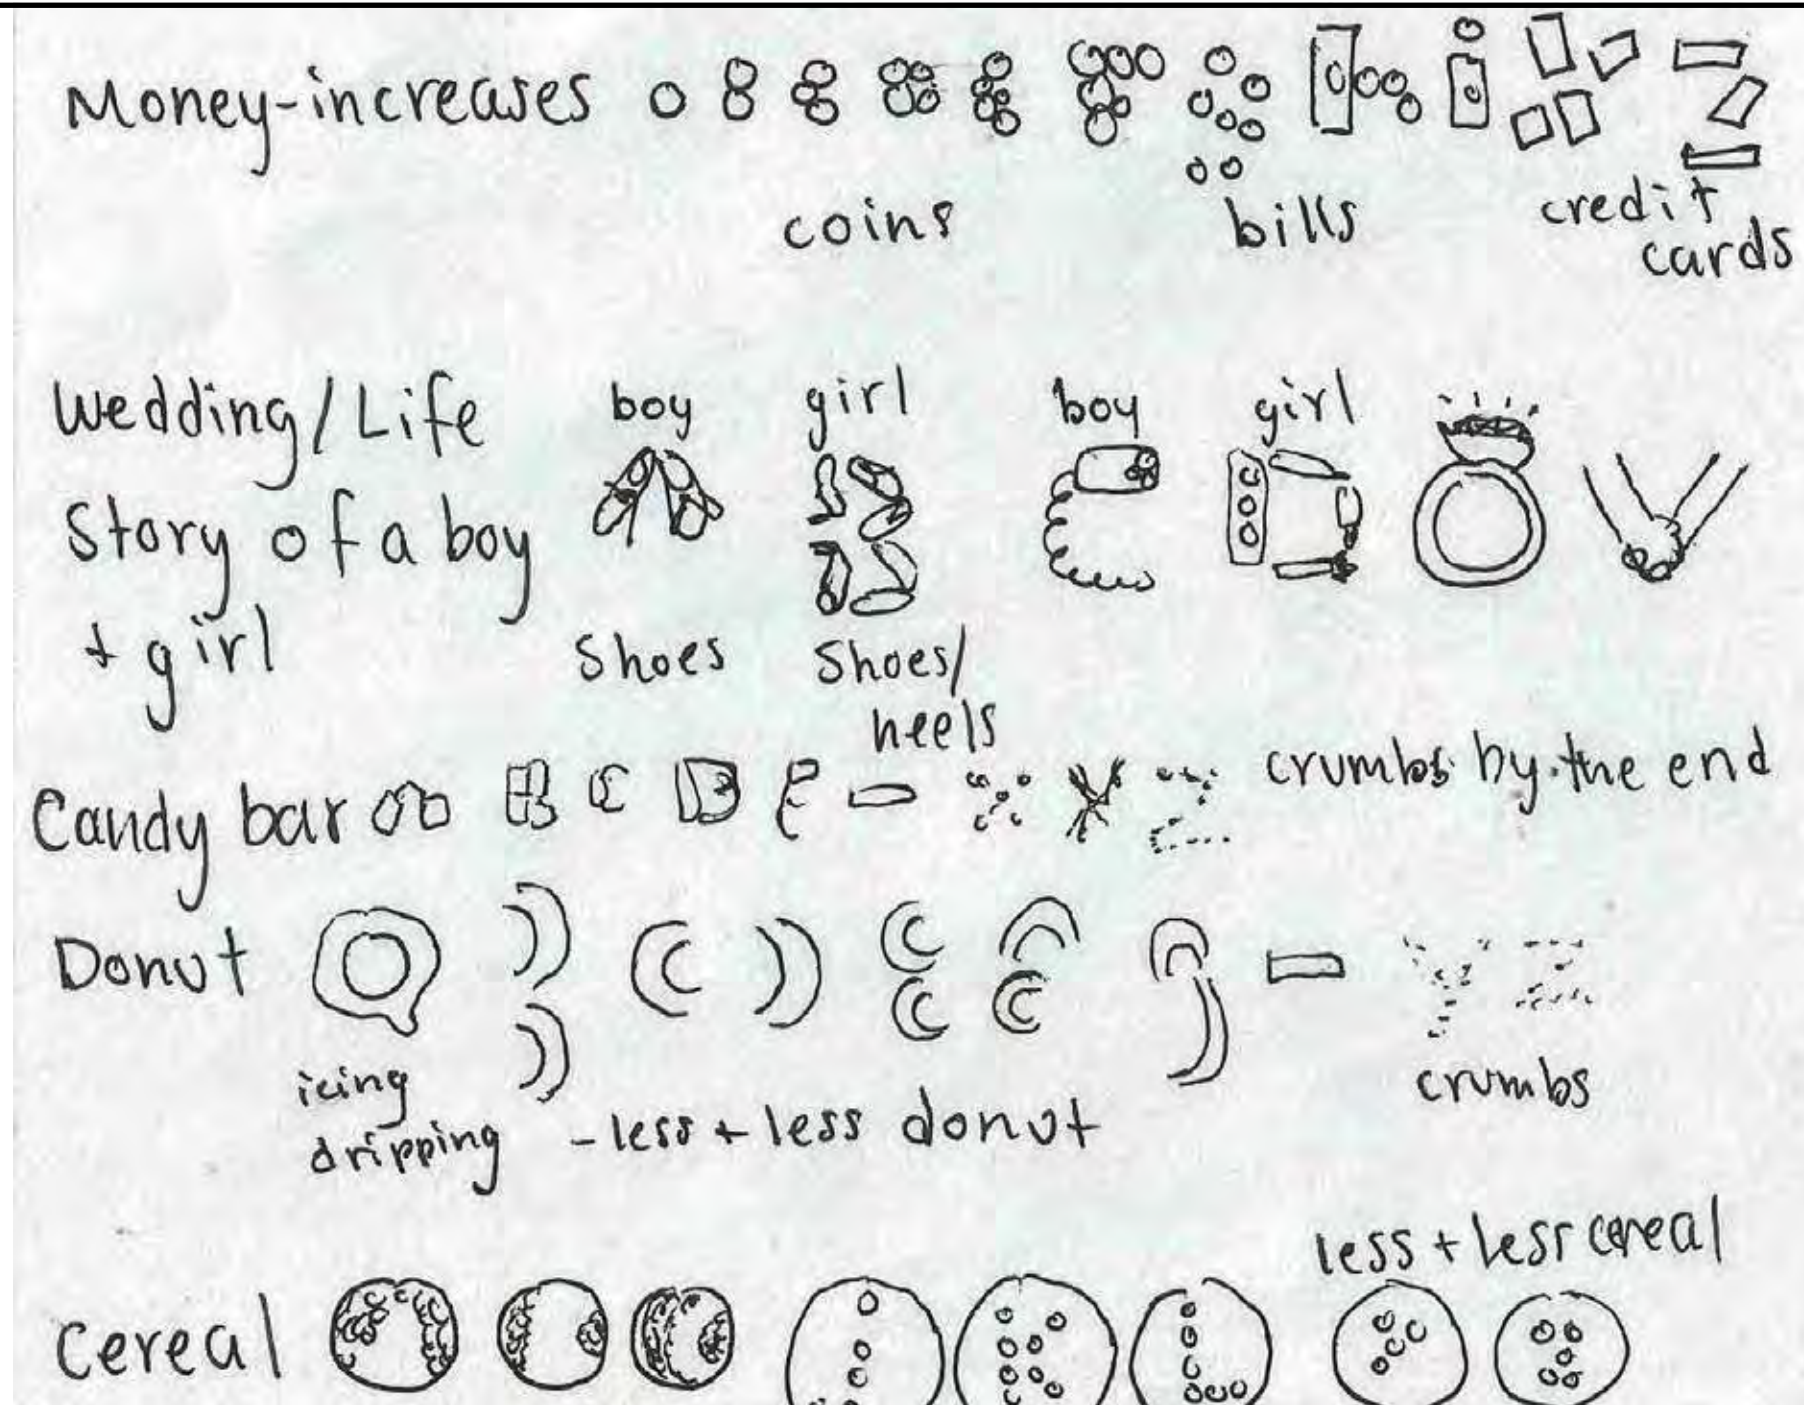 Money-increases
coins bills credit
cards
Wedding/Life boy girl boy girl
Story of a boy
+ girl
Shoes Shoes/
heels
Candy bar crumbs by the end
Donut
icing
dripping -less + less donut
crumbs
less + less cereal
Cereal